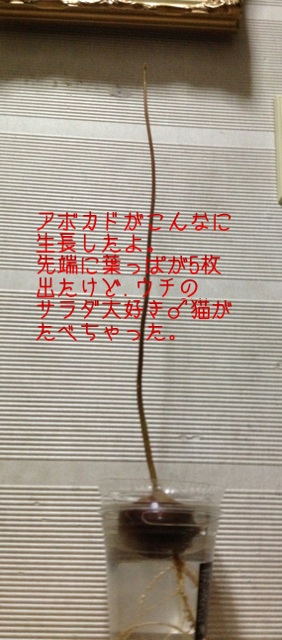 アボカドがこんなに
生長したよ。
先端に葉っぱが5枚
出たけど、ウチの
サラダ大好き♂猫が
たべちゃった。